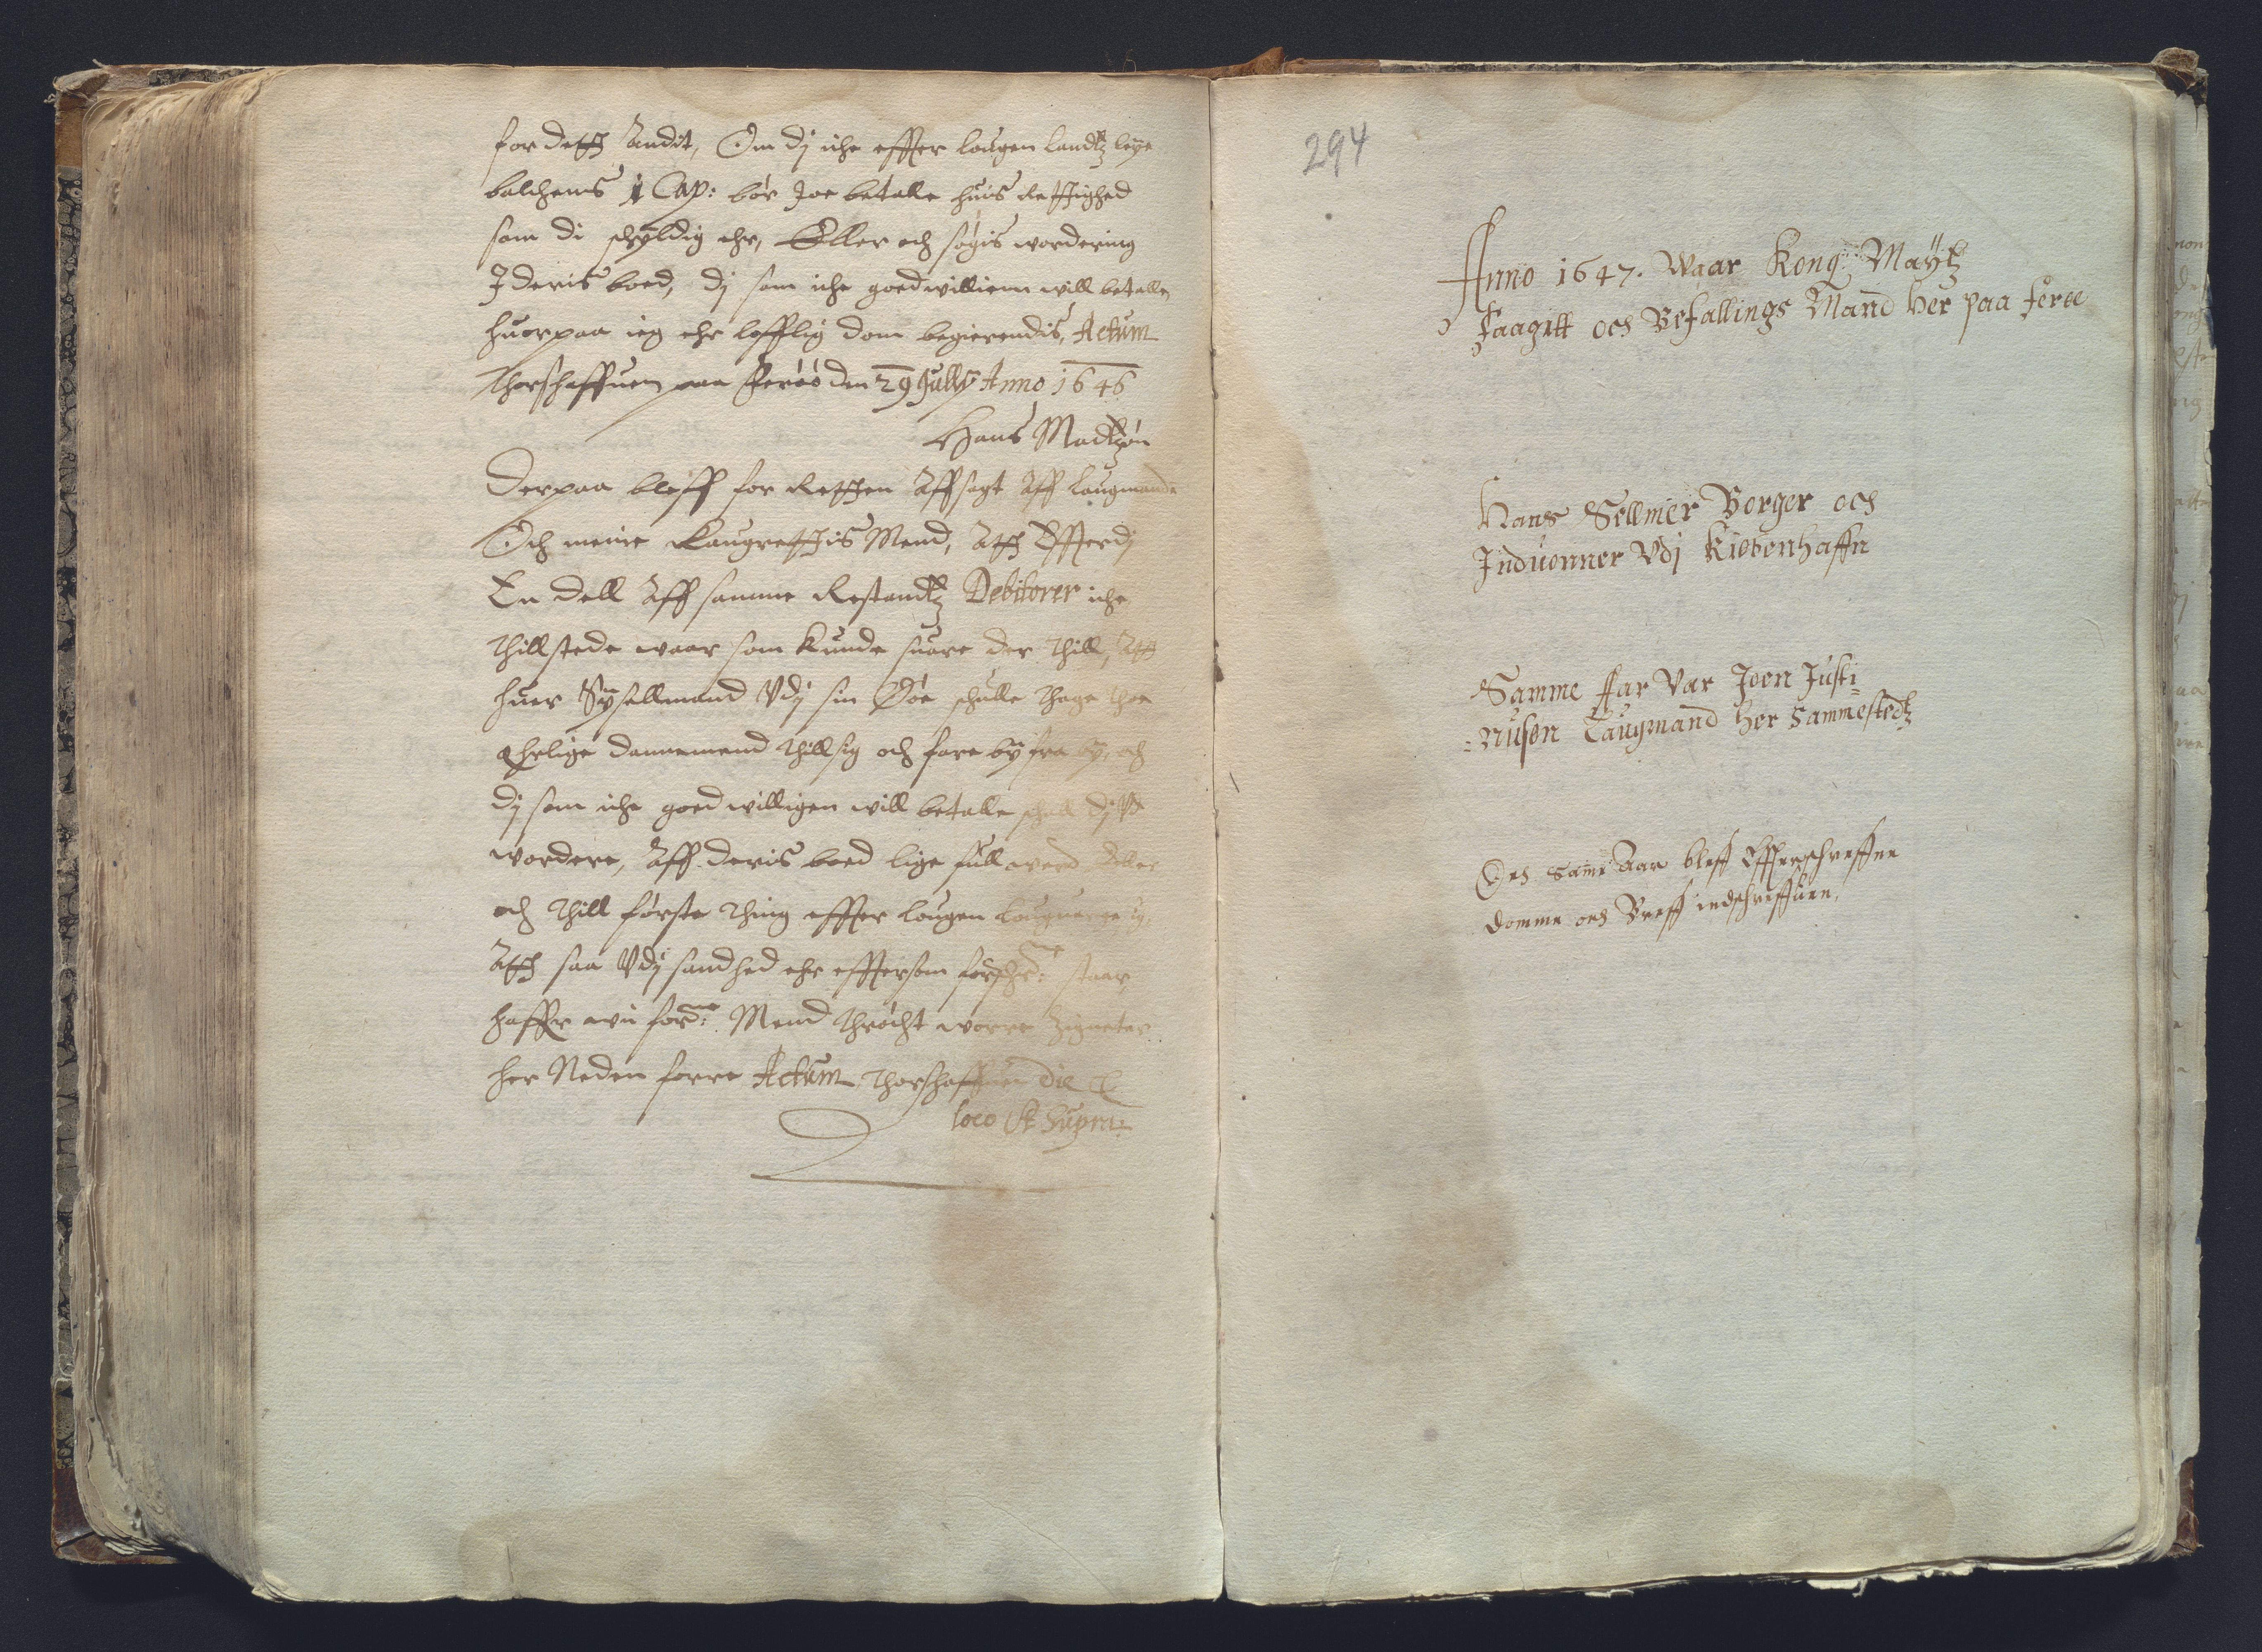 for detth Andit, Om dj iche effter lougen landtz leye
balchens 1 Cap: bør Joe betalle huis Retthighed
som di schÿldig ehr, Eller och søgis wordering
J deris boed, dj som iche goedwilliem will betalle,
huorpaa ieg ehr lofflig dom begierendis, Actum
Thorshaffuen paa Ferøø den 29 Jullij Anno 1646
Hans Madtzøn
Derpaa bleff for Retthen Aff sagt Aff laugmande
Och meine Laugretthis Mend, Atth Effterdj
En dell Aff samme Restandtz Debitorer iche
thillstede waar som kunde suare der thill, Atth
huer Sÿsellmand Vdj sin Øøe schulle thage thoe
Ehrlige dannemend thill sig och fare bÿ fra bÿ, och
dj som iche goedwilligen will betalle schall dj Vd
wordere, Aff deris boed lige full werd Eller
och thill første thing effter lougen
Atth saa Vdj sandhed ehr effter som forschr: staar
haffr wii for:ne Mend thrøcht worre Zigneter
her Neden forre Actum Thorshaffuen Die Et
loco Ut Supra
294
Anno 1647. Waar Kong: Maÿtz
Faagitt och Befallings Mand her paa Feröe
Hans Sellmer Borger och
Induonner Vdj Kiøbenhaffn
Samme Aar Var Joen Justi=
=nusen Laugmand her sammestedtz
Och same Aar bleff Effterschreffne
domme och Breff indschreffuen,